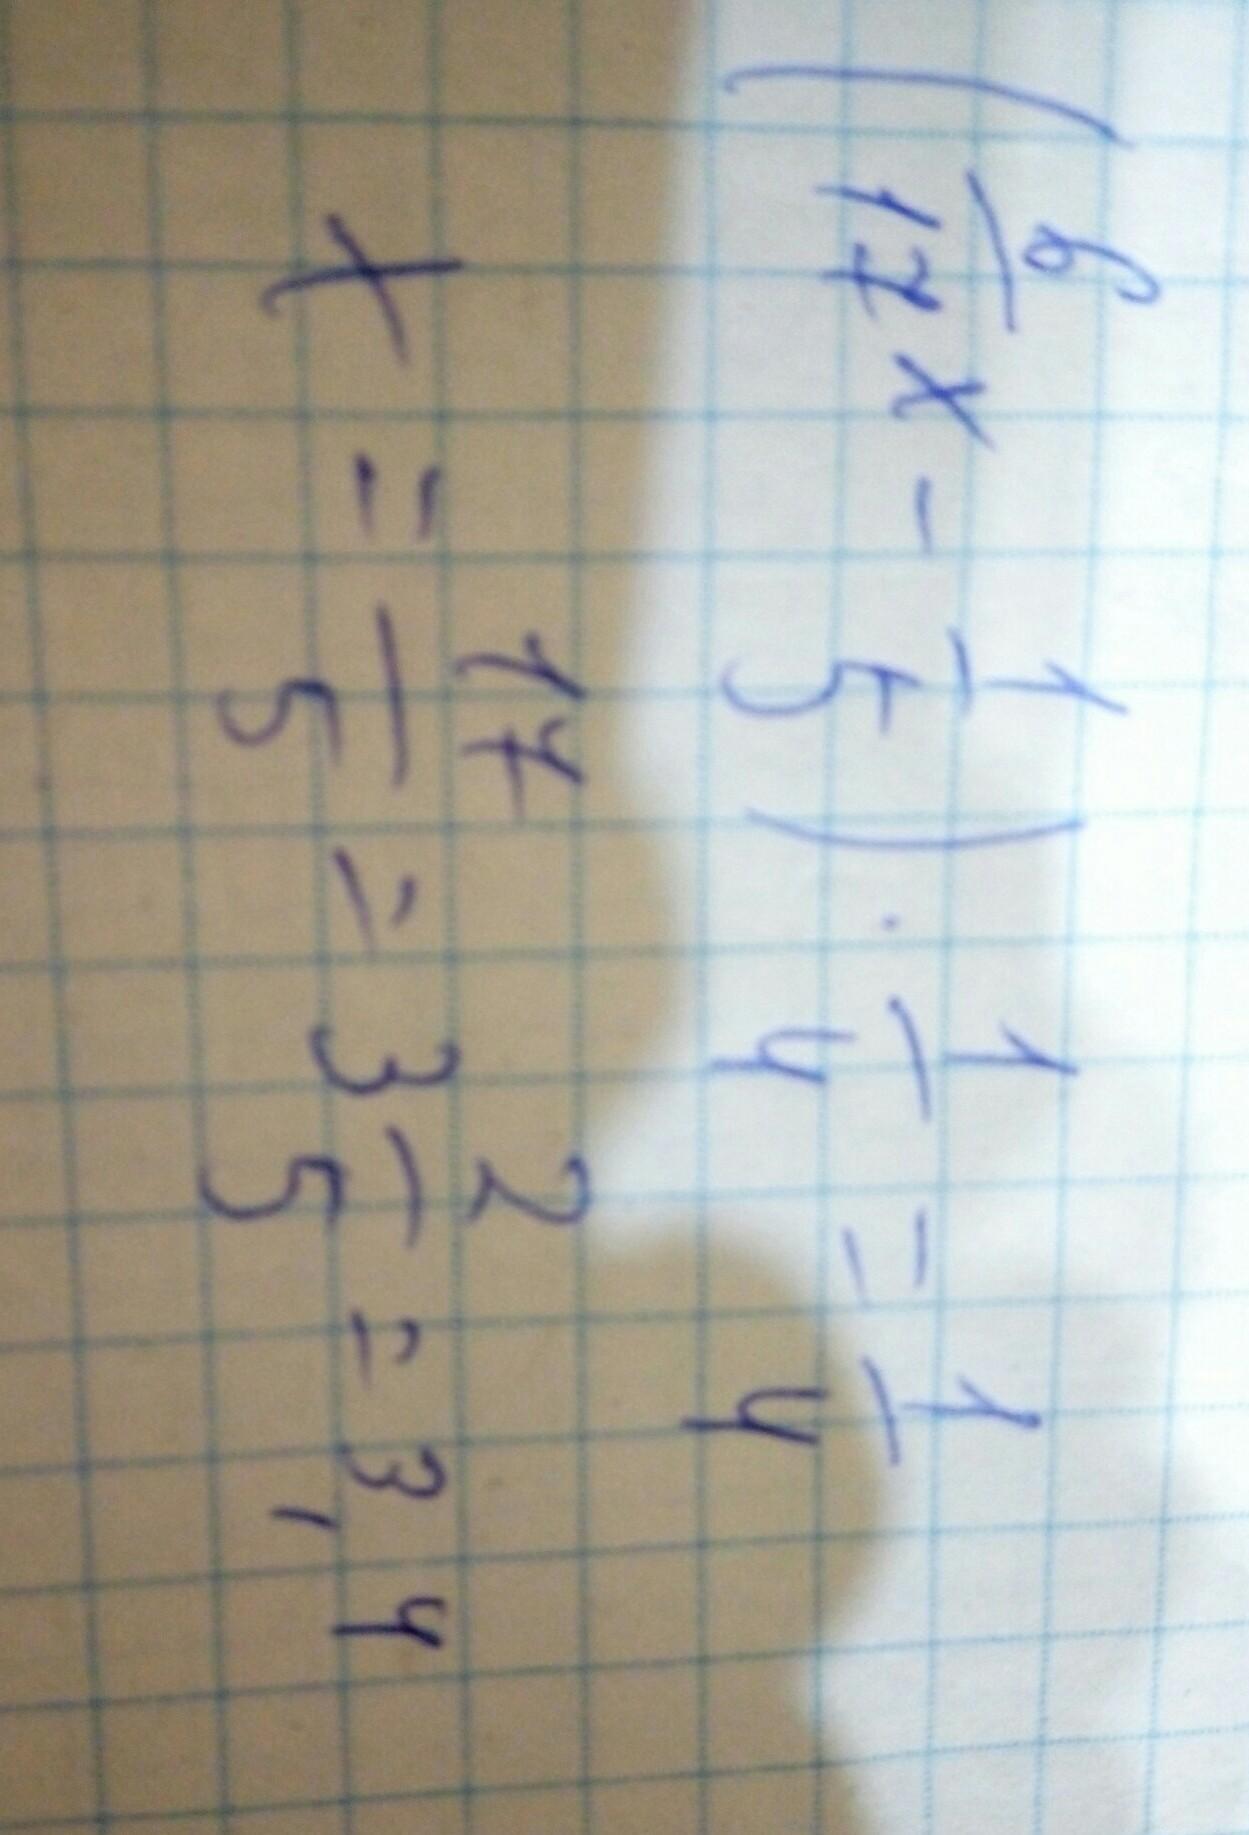 (6/17 x - 1/5) · 1/4 = 1/4
x = 17/5 = 3 2/5 = 3,4